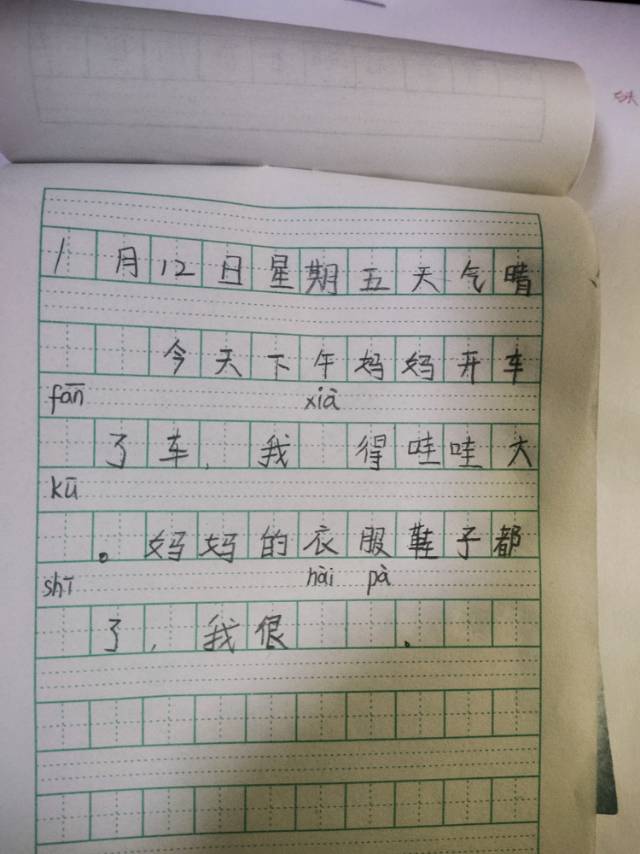 1月12日星期五天气晴
今天下午妈妈开车
fān xià
了车，我 得哇哇大
kū
。妈妈的衣服鞋子都
shī hài pà
了，我很 。